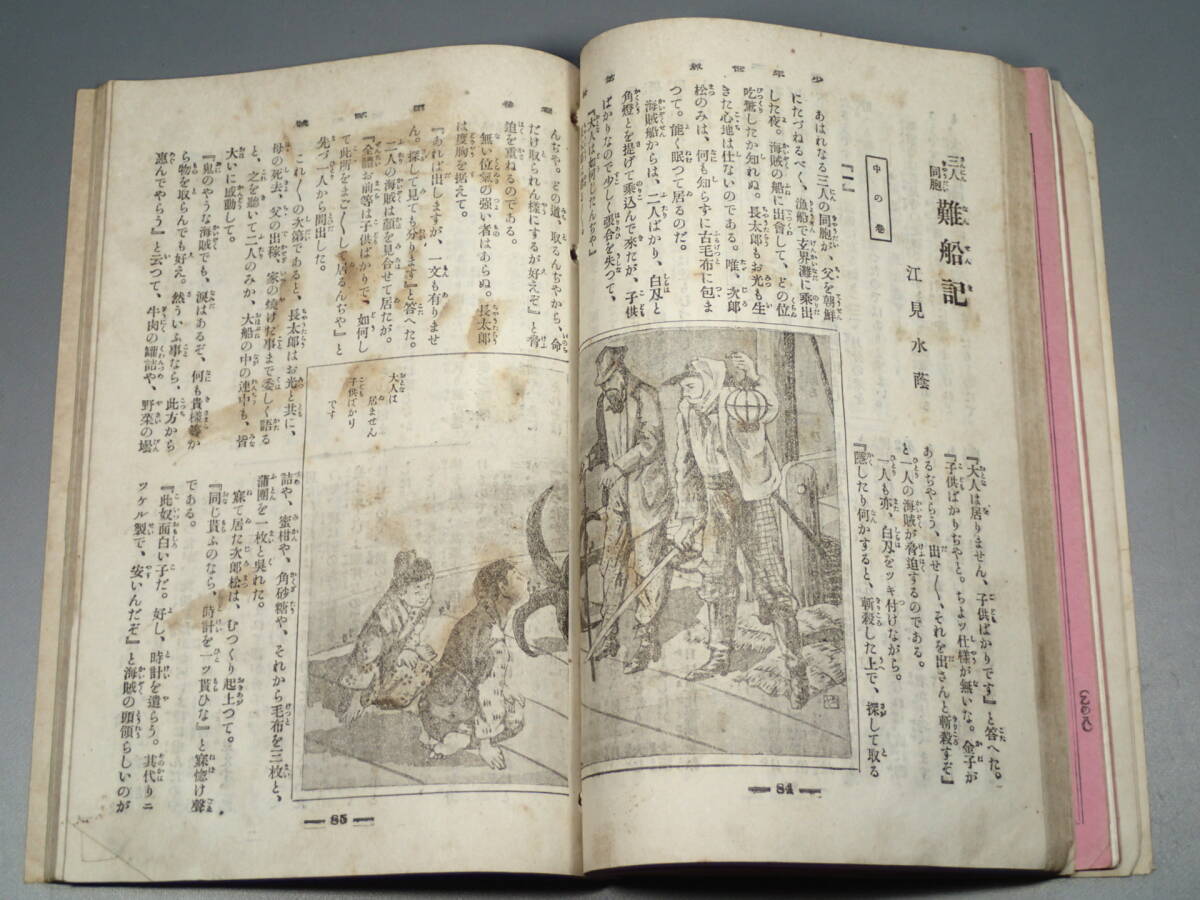 少年世界
三人
同胞
難船記
中の卷
江見水蔭
あはれなる三人の同胞が、父を朝鮮
にたづねるべく、漁船で玄界灘に乘出
した夜。海賊の船に出會して、どの位
吃驚したか知れぬ。長太郎もお光も生
きた心地は仕ないのである。唯、次郎
松のみは、何も知らずに古毛布に包ま
つて。能く眠つて居るのだ。
海賊船からは、二人ばかり、白刄と
角燈とを提げて乘込んで來たが、子供
ばかりなので少しく張合を失つて、
『大人は如何したんぢや』
『大人は居りません、子供ばかりです』と答へた。
『子供ばかりぢやと。ちよッ仕樣が無いな。金子が
あるぢやらう、出せ〱、それを出さんと斬殺すぞ』
と一人の海賊が脅迫するのである。
一人も亦、白刄をツキ付けながら。
『隱したり何かすると、斬殺した上で、探して取る
84
んぢや。どの道、取るんぢやから、命
だけ取られん樣にするが好えぞ』と脅
迫を重ねるのである。
無い位氣の强い者はあらぬ。長太郎
は度胸を据えて。
『あれば出しますが、一文も有りませ
ん。探して見て分ります』と答へた。
二人の海賊は顏を見合せて居たが。
『全體お前等は子供ばかりで、如何し
て此所をまご〱して居るんぢや』と
先づ一人から問出した。
これ〱の次第であると、長太郎はお光と共に、
母の死去、父の出稼、家の燒けた事まで委しく語る
と、之を聽いて二人のみか、大船の中の連中も、皆
大いに感動して。
『鬼のやうな海賊でも、淚はあるぞ、何も貴樣等か
ら物を取らんでも好え。然ういふ事なら、此方から
惠んでやらう』と云つて、牛肉の罐詰や、野菜の壜
大人は
居ません
子供ばかり
です
詰や、蜜柑や、角砂糖や、それから毛布を三枚と、
蒲團を一枚と吳れた。
寐て居た次郎松は、むつくり起上つて。
『同じ貰ふのなら、時計を一ッ貰ひな』と寐惚け聲
である。
『此奴面白い子だ。好し、時計を遣らう。其代りニ
ツケル製で、安いんだぞ』と海賊の頭領らしいのが
85